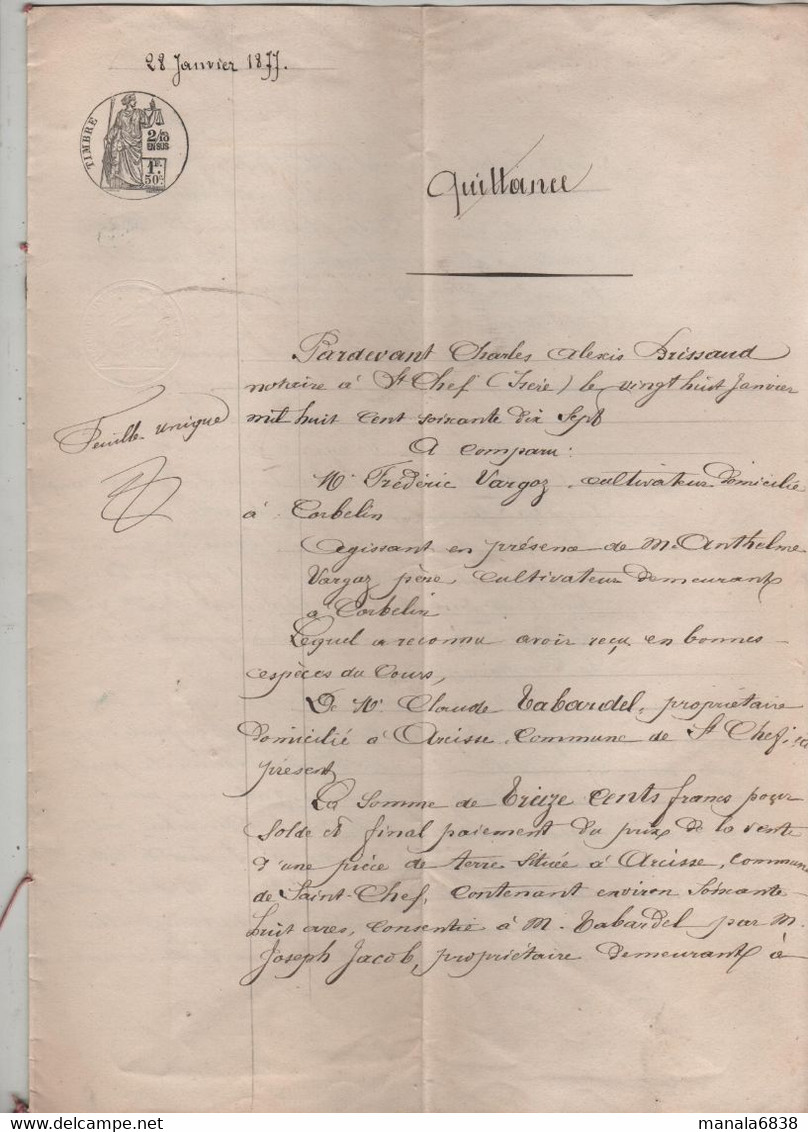 28 Janvier 1877.
TIMBRE
2/10
EN SUS
1F.
50C.
Quittance
Pardevant Charles Alexis Brissaud
notaire à St Chef (Isère) le vingt huit Janvier
mil huit cent soixante dix sept
Feuille unique
A comparu :
Mr Frédéric Vargoz, cultivateur domicilié
à Corbelin
Agissant en présence de M. Anthelme
Vargoz père, cultivateur demeurant
à Corbelin
Lequel a reconnu avoir reçu en bonnes
espèces du Cours,
De Mr Claude Tabardel, propriétaire
domicilié à Arcisse, commune de St Chef, ici
présent
La somme de Treize cents francs pour
solde et final paiement du prix de la vente
d'une pièce de terre située à Arcisse, commune
de Saint-Chef, contenant environ soixante
huit ares, consentie à M. Tabardel par M.
Joseph Jacob, propriétaire demeurant à
www.delcampe.net
manala6838